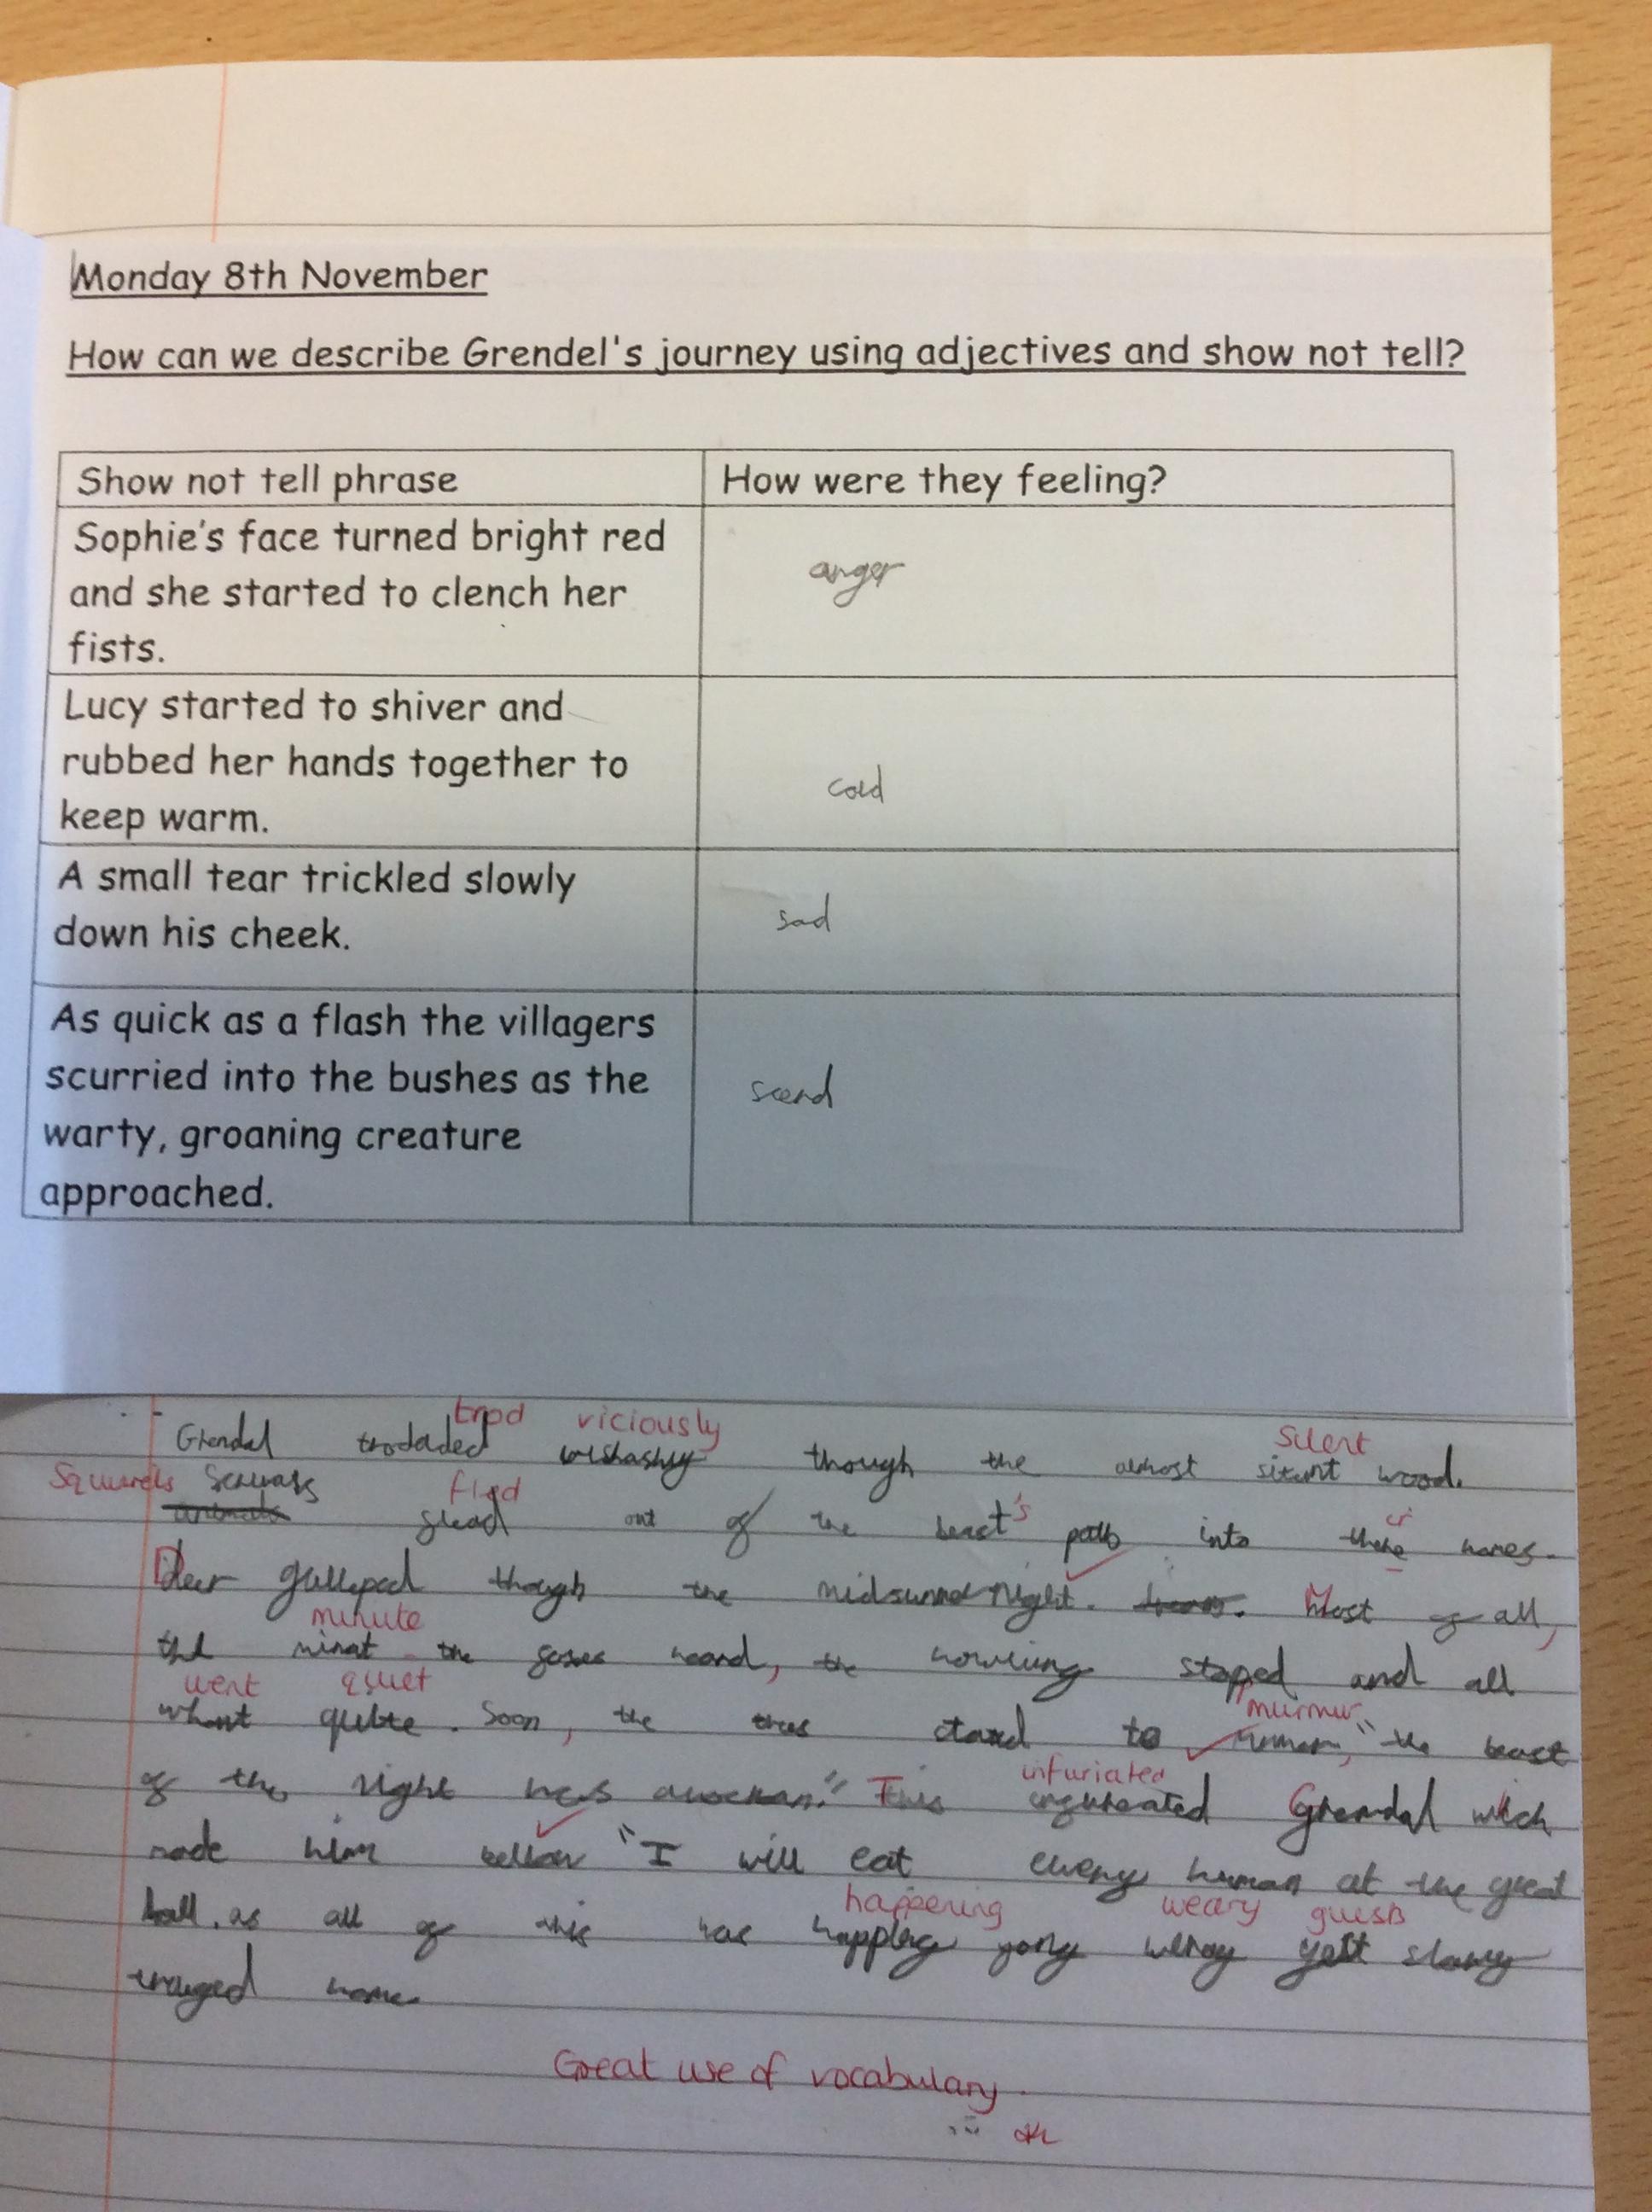 Monday 8th November
How can we describe Grendel's journey using adjectives and show not tell?
Show not tell phrase
How were they feeling?
Sophie's face turned bright red
and she started to clench her
fists.
anger
Lucy started to shiver and
rubbed her hands together to
keep warm.
cold
A small tear trickled slowly
down his cheek.
sad
As quick as a flash the villagers
scurried into the bushes as the
warty, groaning creature
approached.
trod viciously silent
Grendal trodaded though the almost wood.
Squirrels fled
out of the beast's path into homes.
Deer galleped though the night. Most of all,
minute
the howling stoped and all
went quiet
Soon, the trees to the beast
murmur
of the night has This Grendal
infuriated
made him bellow "I will eat every human at the great
happening weary guests
hall. as all of this was yong
home
Great use of vocabulary.